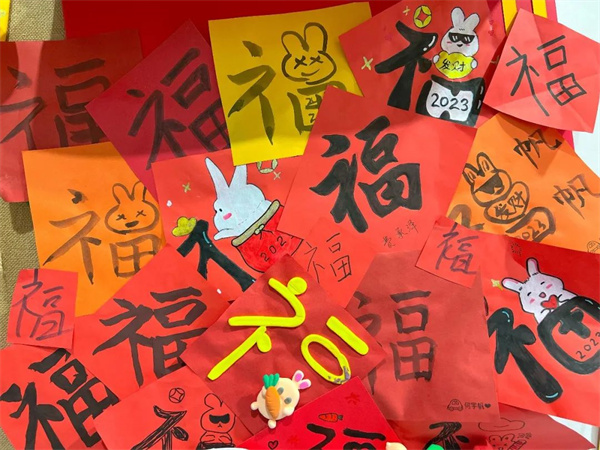 福
福
福
福
发财
2023
福
福
福
2023
福
福
帆
帆
发财
福
福
2023
福
福
福
福
福